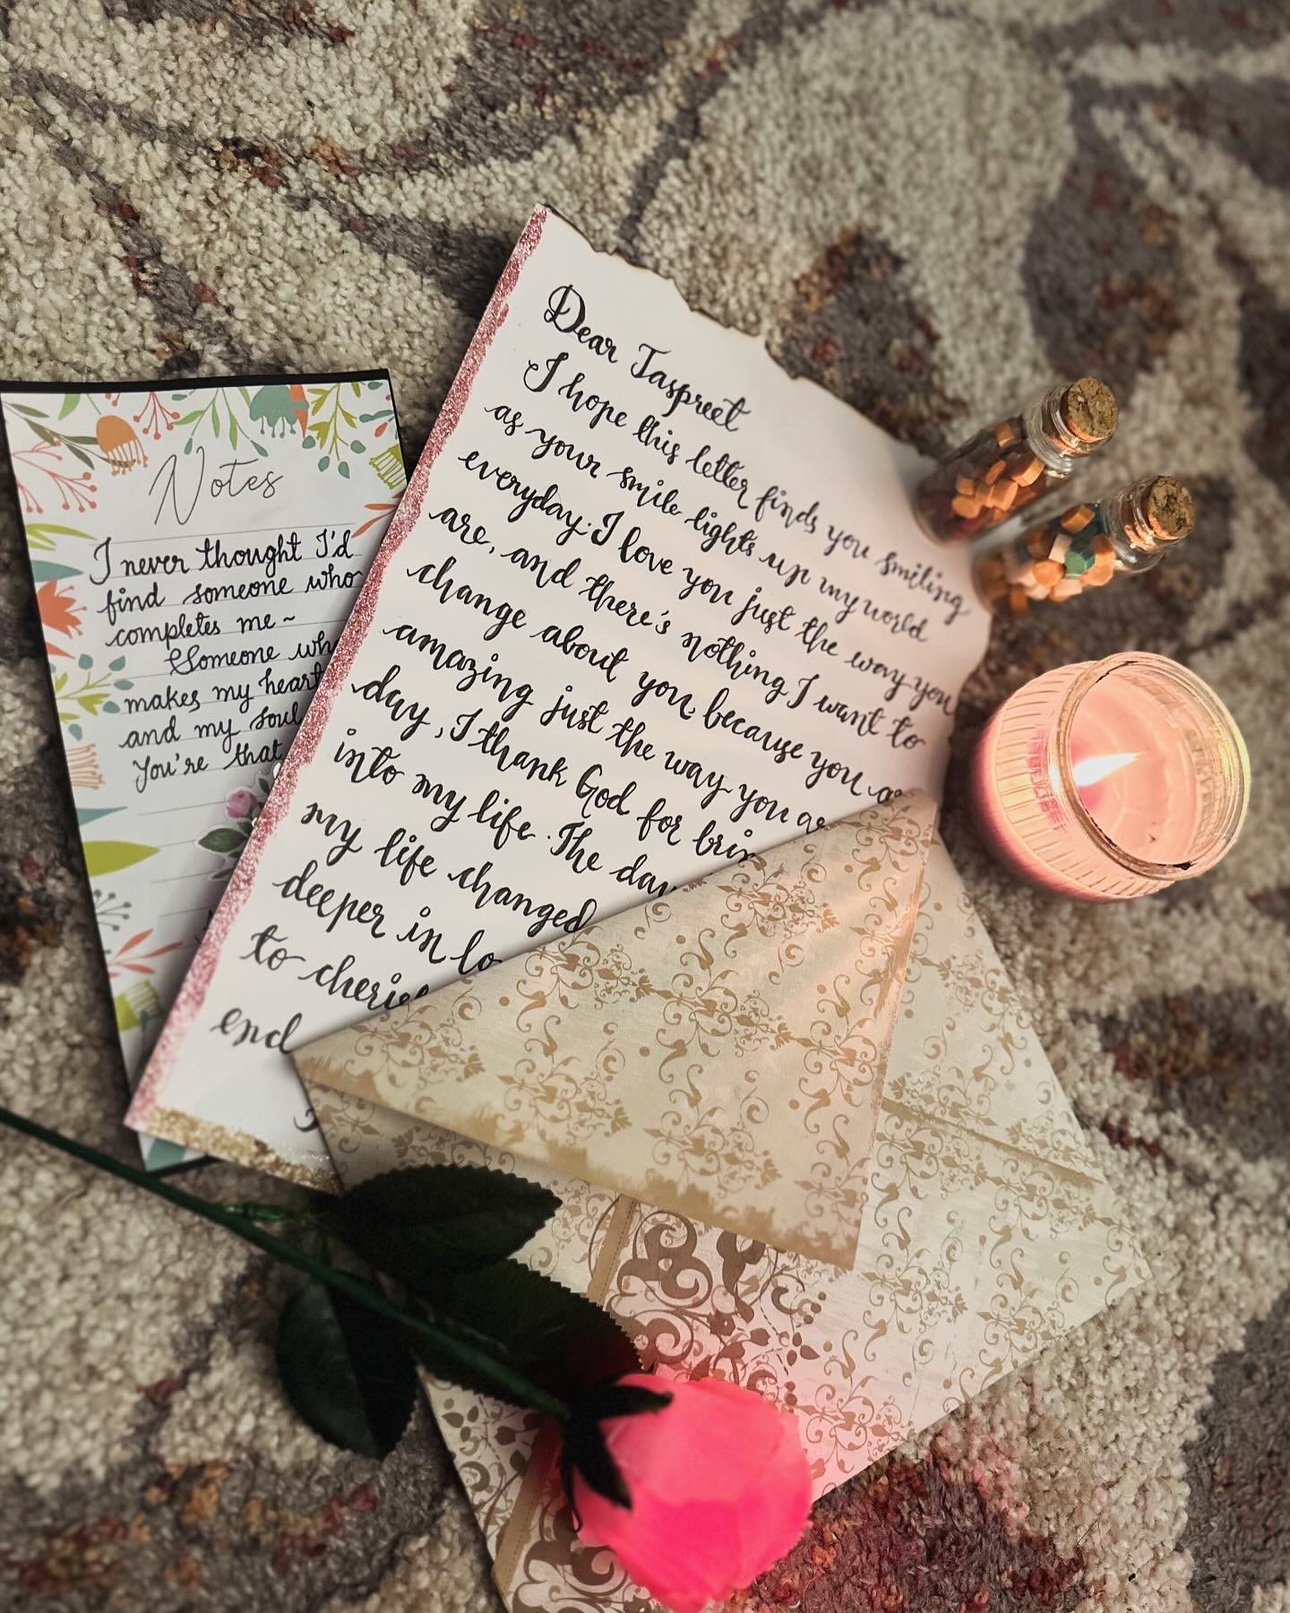 Notes
I never thought I'd
find someone who
completes me ~
Someone who
makes my heart
and my soul
You're that
Dear Jaspreet
I hope this letter finds you smiling
as your smile lights up my world
everyday. I love you just the way you
are, and there's nothing I want to
change about you, because you
amazing just the way you
day, I thank God for
into my life. The
my life changed
deeper in
to
end